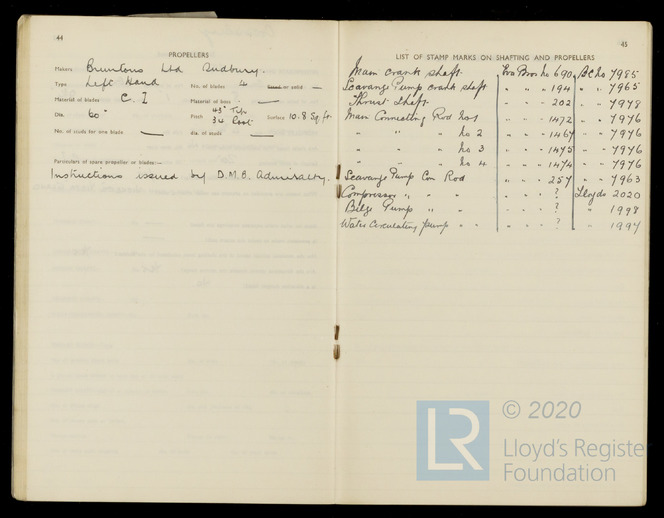 44
PROPELLERS
Makers Bruntons Ltd Sudbury.
Type Left Hand No. of blades 4 or solid —
Material of blades C. I Material of boss —
Dia. 60" Pitch 43" Tip 34 Root Surface 10.8 Sq. ft.
No. of studs for one blade — dia. of studs —
Particulars of spare propeller or blades:—
Instructions issued by D.M.B. Admiralty.
45
LIST OF STAMP MARKS ON SHAFTING AND PROPELLERS
Main crank shaft. Bros No 690 BC No 7985
Scavange Pump crank shaft " " " 194 " " 7965
Thrust Shaft " " " 202 " " 7978
Main Connecting Rod No 1 " " " 1472 " " 7976
" " " No 2 " " " 1467 " " 7976
" " " No 3 " " " 1475 " " 7976
" " " No 4 " " " 1474 " " 7976
Scavange Pump Con Rod " " " 257 " " 7963
Compressor " " " " " ? Lloyds 2020
Bilge Pump " " " " " ? " 1998
Water Circulating pump " " " " " ? " 1994
© 2020
LR
Lloyd's Register
Foundation